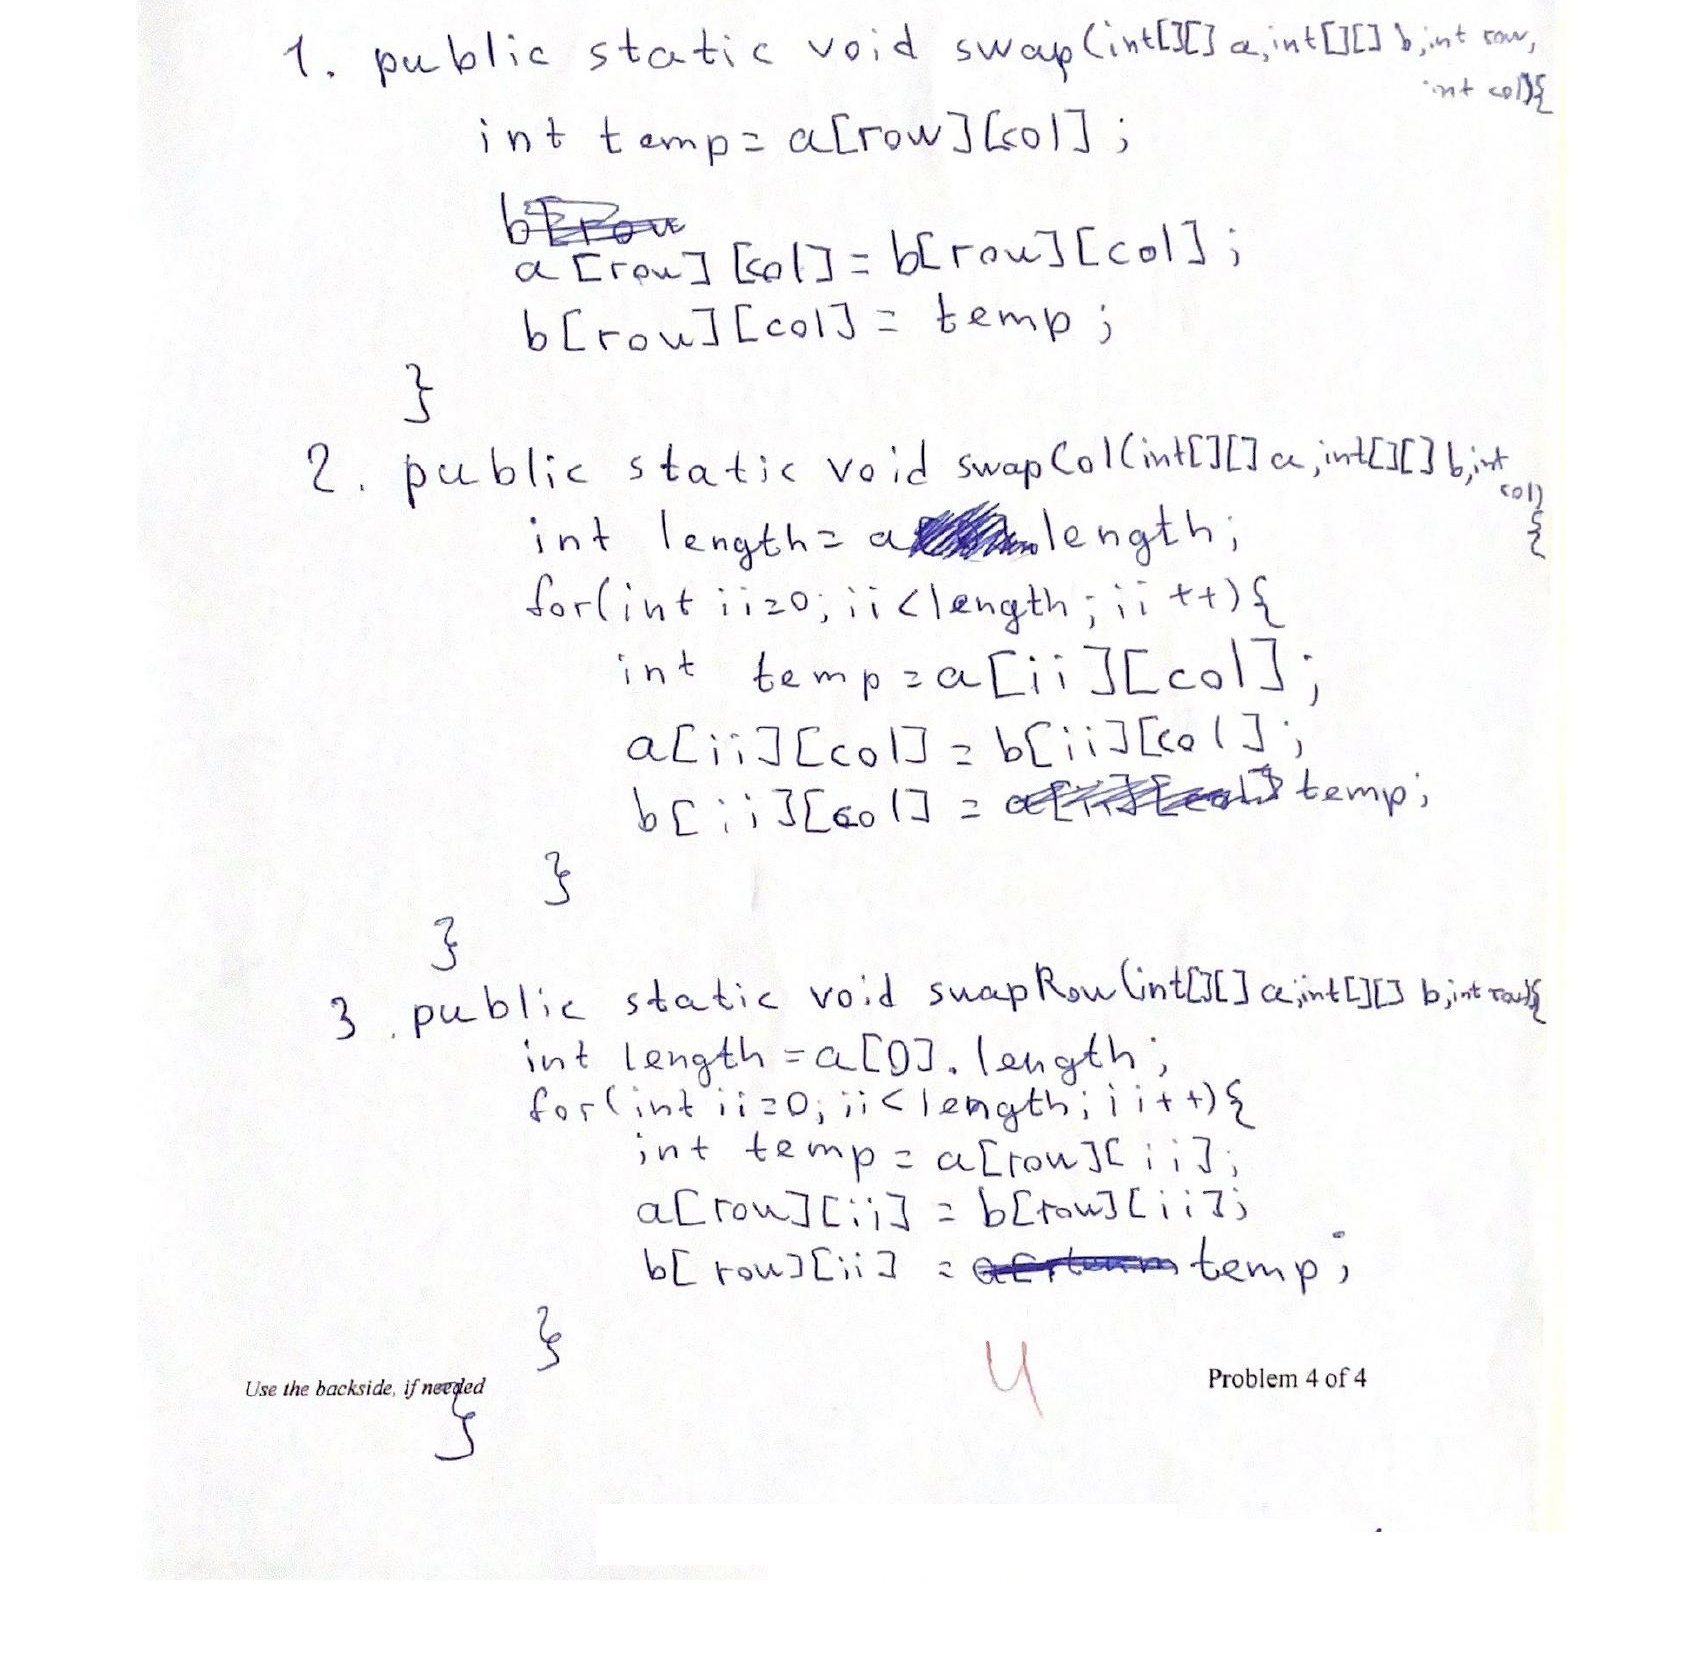 1. public static void swap(int[][] a,int[][] b,int row,
int col){
int temp= a[row][col];
a[row][col]= b[row][col];
b[row][col]= temp;
}
2. public static void swapCol(int[][] a,int[][] b,int
col)
{
int length= a.length;
for(int ii=0;ii<length;ii++){
int temp=a[ii][col];
a[ii][col]=b[ii][col];
b[ii][col] = temp;
}
}
3. public static void swapRow(int[][] a,int[][] b,int row){
int length=a[0].length;
for(int ii=0;ii<length;ii++){
int temp=a[row][ii];
a[row][ii] = b[row][ii];
b[row][ii] = temp;
}
4
Problem 4 of 4
Use the backside, if needed
}